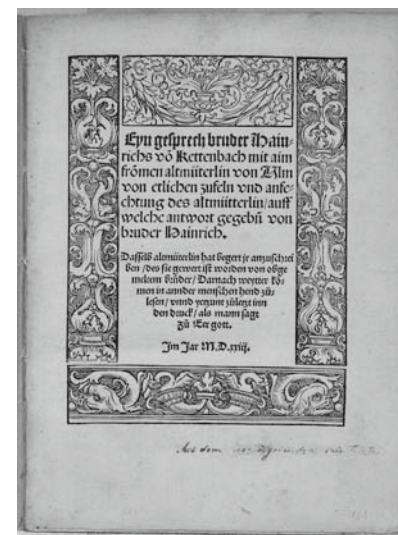 Eyn gesprech bruder Hain-
richs vō Kettenbach mit aim
frōmen altmüterlin von Ulm
von etlichen zufeln vnd anfe-
chtung des altmütterlin/auff
welche antwort gegebē von
bruder Hainrich.
Dasselb altmüterlin hat begert ir anzuschrei
ben/des sie gewert ist worden von obge
meltem brůder/Darnach weytter ko-
men in annder menschen hend zů-
lesen/vnnd yetzunt zůletzt inn
den druck/als mann sagt
Zů Eer gott.
Im Jar M.D.xxiij.
Aus dem